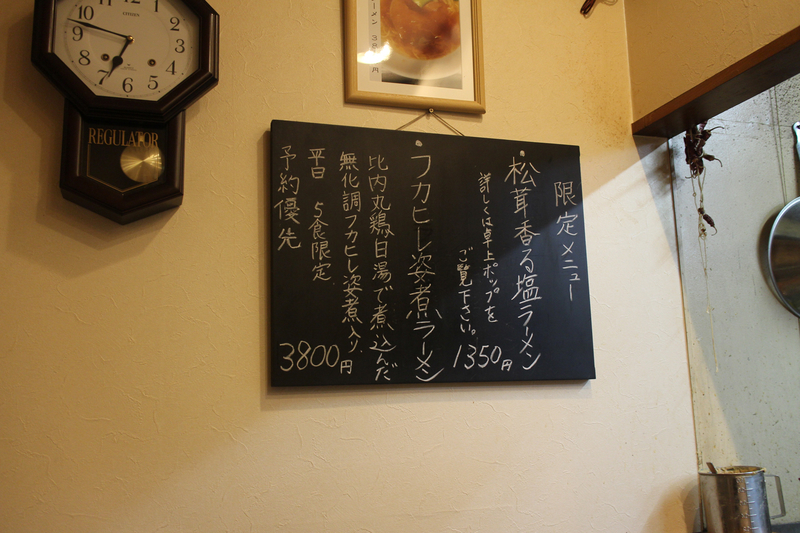 限定メニュー
松茸香る塩ラーメン
詳しくは卓上ポップを
ご覧下さい。
1350円
フカヒレ姿煮ラーメン
比内丸鶏白湯で煮込んだ
無化調フカヒレ姿煮入り
平日 5食限定
予約優先
3800円
REGULATOR
CITIZEN
12
1
2
3
4
5
6
7
8
9
10